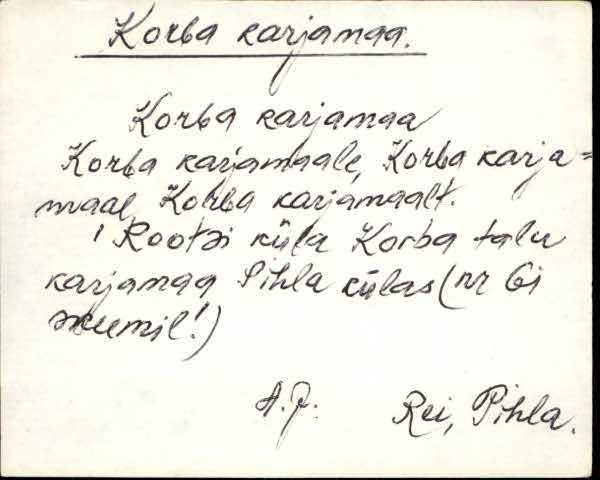 Korba karjamaa.
Korba karjamaa
Korba karjamaale, Korba karja=
maal, Korba karjamaalt.
! Rootsi küla Korba talu
karjamaa Pihla külas (nr 61
skeemil!)
A.J.
Rei, Pihla.